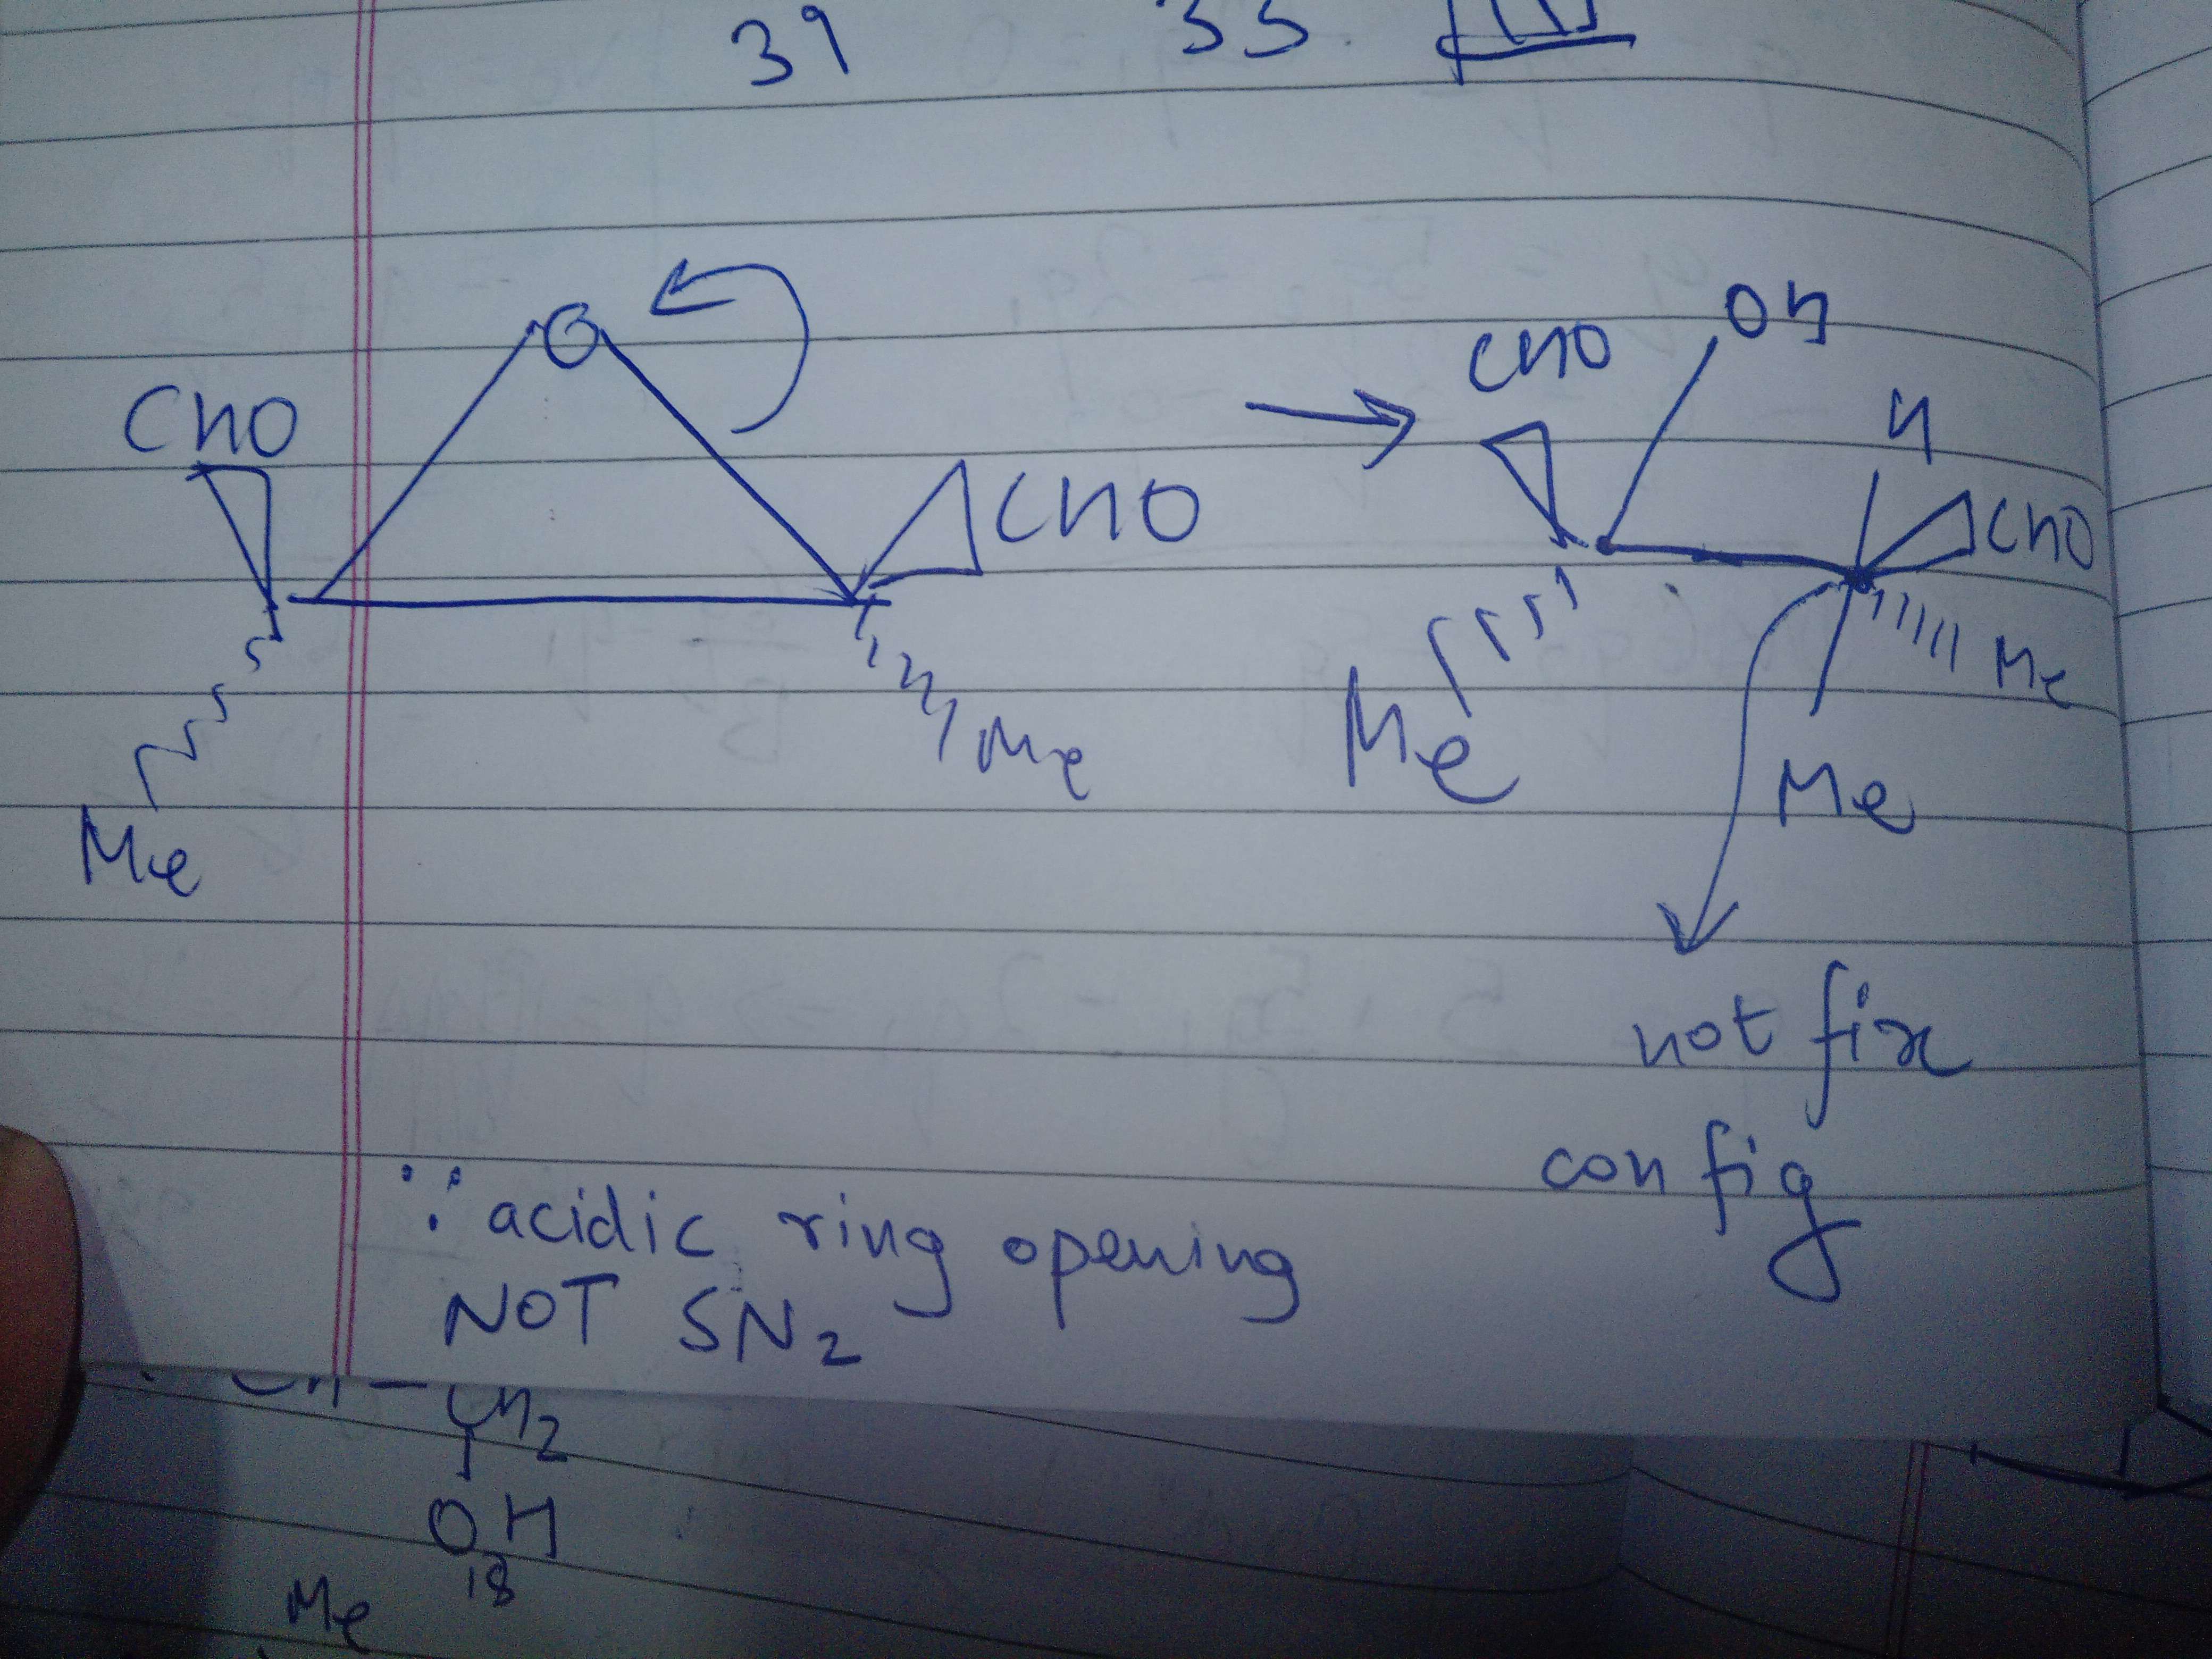 39 35.
OH
CHO
H
O
CHO
CHO
CHO
Me
Me
Me
Me
Me
not fix
config
∵ acidic ring opening
NOT SN2
CH2
OH
18
Me